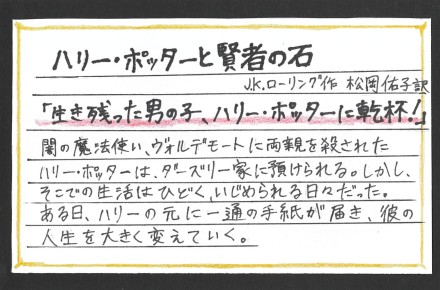 ハリー・ポッターと賢者の石
J.K.ローリング作 松岡佑子訳
「生き残った男の子、ハリー・ポッターに乾杯!」
闇の魔法使い、ヴォルデモートに両親を殺された
ハリー・ポッターは、ダーズリー家に預けられる。しかし、
そこでの生活はひどく、いじめられる日々だった。
ある日、ハリーの元に一通の手紙が届き、彼の
人生を大きく変えていく。